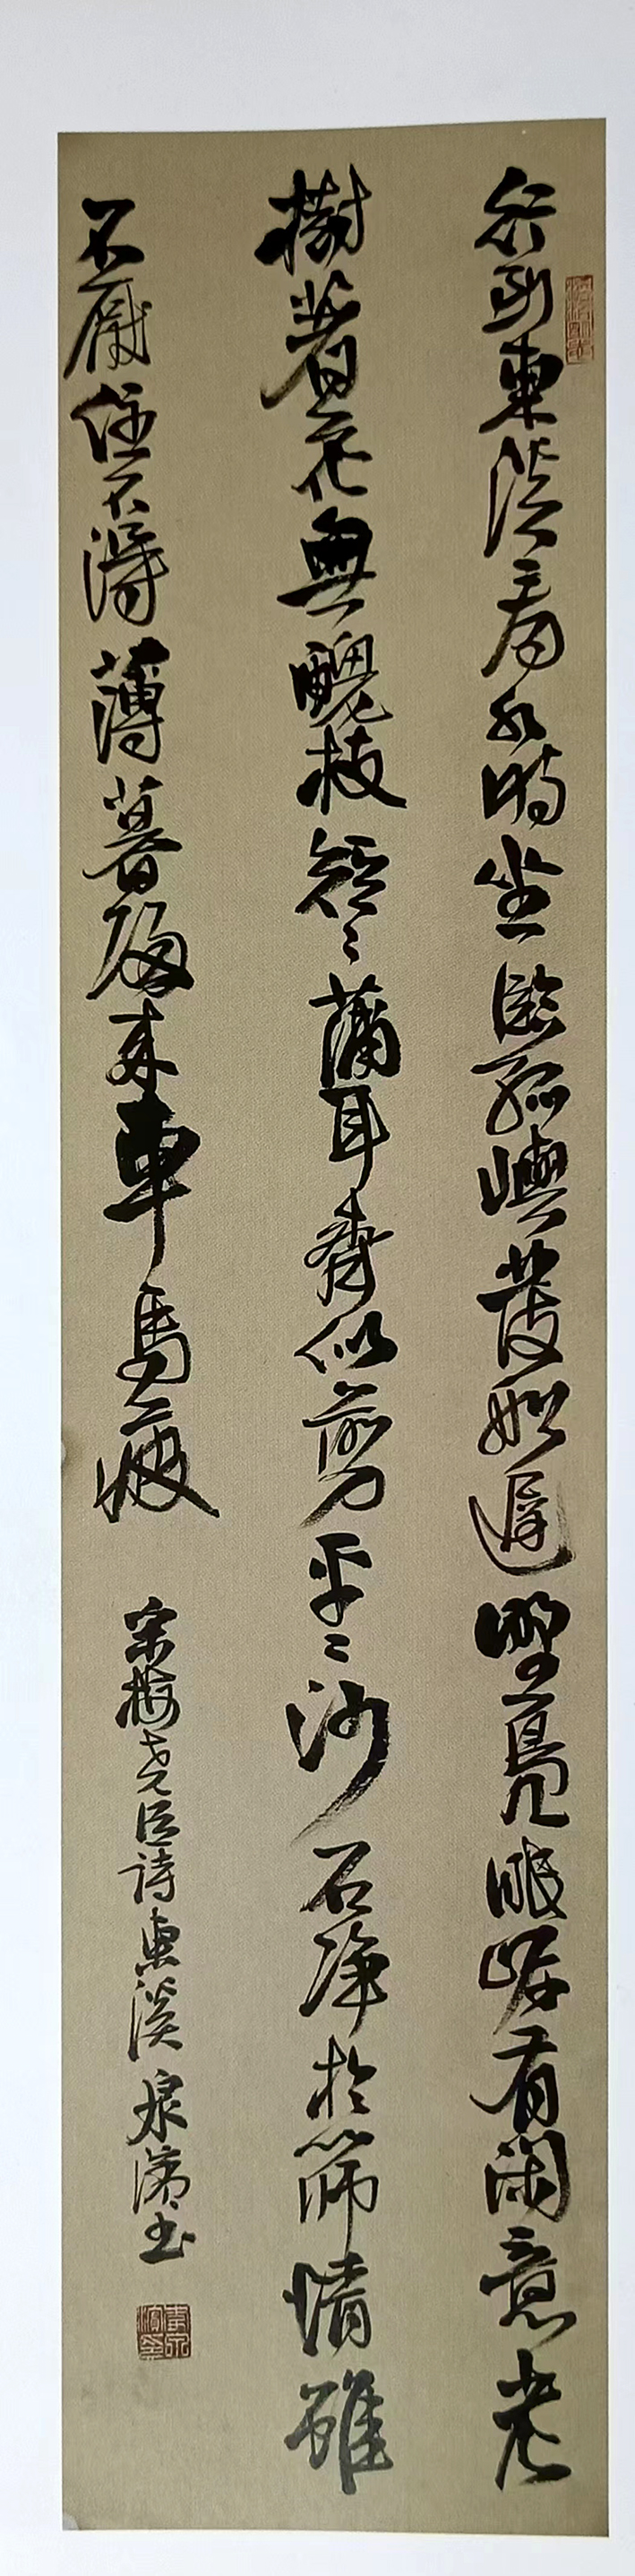 行到東溪看水時坐臨孤嶼發船遲野鳧眠岸有閑意老
樹著花無醜枝短〻蒲茸齊似剪平〻沙石淨於篩情雖
不厭住不得薄暮歸來車馬疲
宋梅堯臣詩東溪泉濱書